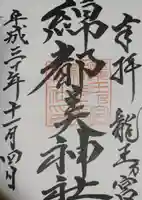 奉拝 龍王宮
綿都美神社
平成三十年十一月四日